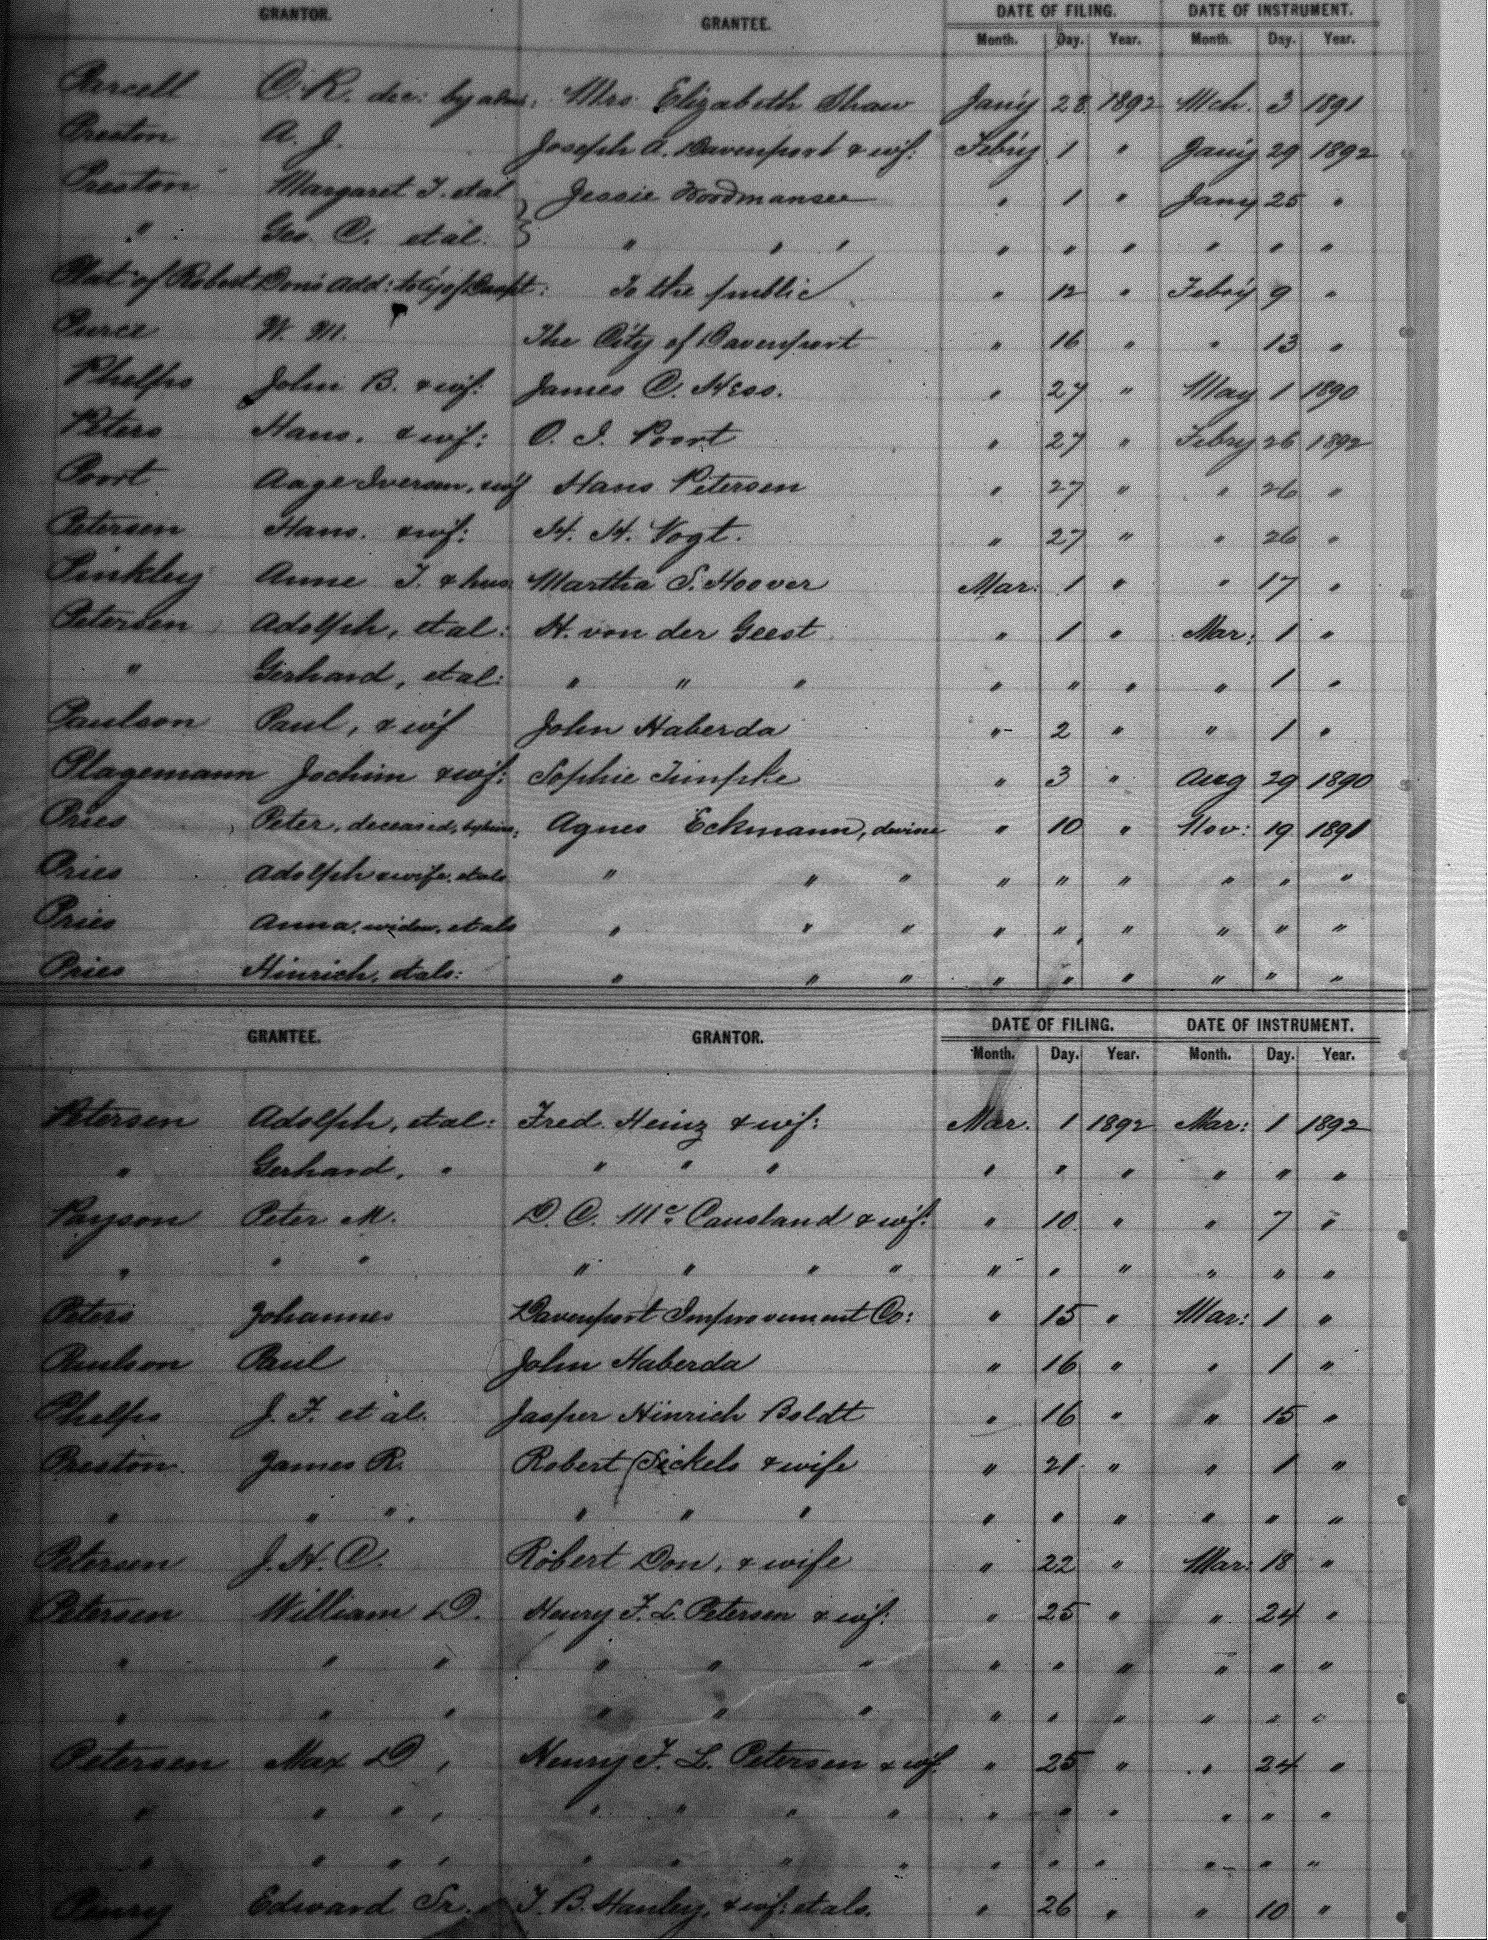 GRANTOR. GRANTEE. DATE OF FILING. DATE OF INSTRUMENT.
Month. Day. Year. Month. Day. Year.
Parcell O. R. dec: by adm: Mrs. Elizabeth Shaw Jan'y 28 1892 Mch. 3 1891
Preston A. J. Joseph A. Davenport & wf: Feb'ry 1 " Jan'y 29 1892
Preston Margaret J. et al Jessie Woodmansee " 1 " Jan'y 25 "
" Geo. C. et al. " " " " " " " " "
Plat of Robert Don's Add: to City of Davpt: To the public " 12 " Feb'ry 9 "
Pierce W. M. The City of Davenport " 16 " " 13 "
Phelps John B. & wf: James C. Hess. " 27 " May 1 1890
Peters Hans. & wf: O. I. Poort " 27 " Feb'ry 26 1892
Poort Aage Iversen, wf Hans Petersen " 27 " " 26 "
Petersen Hans. & wf: H. H. Vogt. " 27 " " 26 "
Pinkley Anne J. & hus. Martha S. Hoover Mar: 1 " " 17 "
Petersen Adolph, et al: H. von der Geest " 1 " Mar: 1 "
" Gerhard, et al: " " " " " " " 1 "
Paulson Paul, & wf John Haberda " 2 " " 1 "
Plagemann Jochim & wf: Sophie Timpke " 3 " Aug 29 1890
Pries Peter, deceased, Agnes Eckmann, " 10 " Nov: 19 1891
Pries Adolph & wife, et als " " " " " " " " "
Pries Anna, widow, et als " " " " " " " " "
Pries Hinrich, et als: " " " " " " " " "
GRANTEE. GRANTOR. DATE OF FILING. DATE OF INSTRUMENT.
Month. Day. Year. Month. Day. Year.
Petersen Adolph, et al: Fred. Heinz & wf: Mar. 1 1892 Mar: 1 1892
" Gerhard, " " " " " " " " " "
Payson Peter M. D. C. McCausland & wf: " 10 " " 7 "
" " " " " " " " " " " " "
Peters Johannes Davenport Improvement Co: " 15 " Mar: 1 "
Paulson Paul John Haberda " 16 " " 1 "
Phelps J. F. et al. Jasper Hinrich Boldt " 16 " " 15 "
Preston James R. Robert Sickels & wife " 21 " " 1 "
" " " " " " " " " " " "
Petersen J. H. C. Robert Don, & wife " 22 " Mar: 18 "
Petersen William D. Henry F. L. Petersen & wf: " 25 " " 24 "
" " " " " " " " " " " "
" " " " " " " " " " " "
Petersen Max D, Henry F. L. Petersen & wf " 25 " " 24 "
" " " " " " " " " " " " "
" " " " " " " " " " " " "
Penry Edward Sr. J. B. Hanley, & wf: et als. " 26 " " 10 "